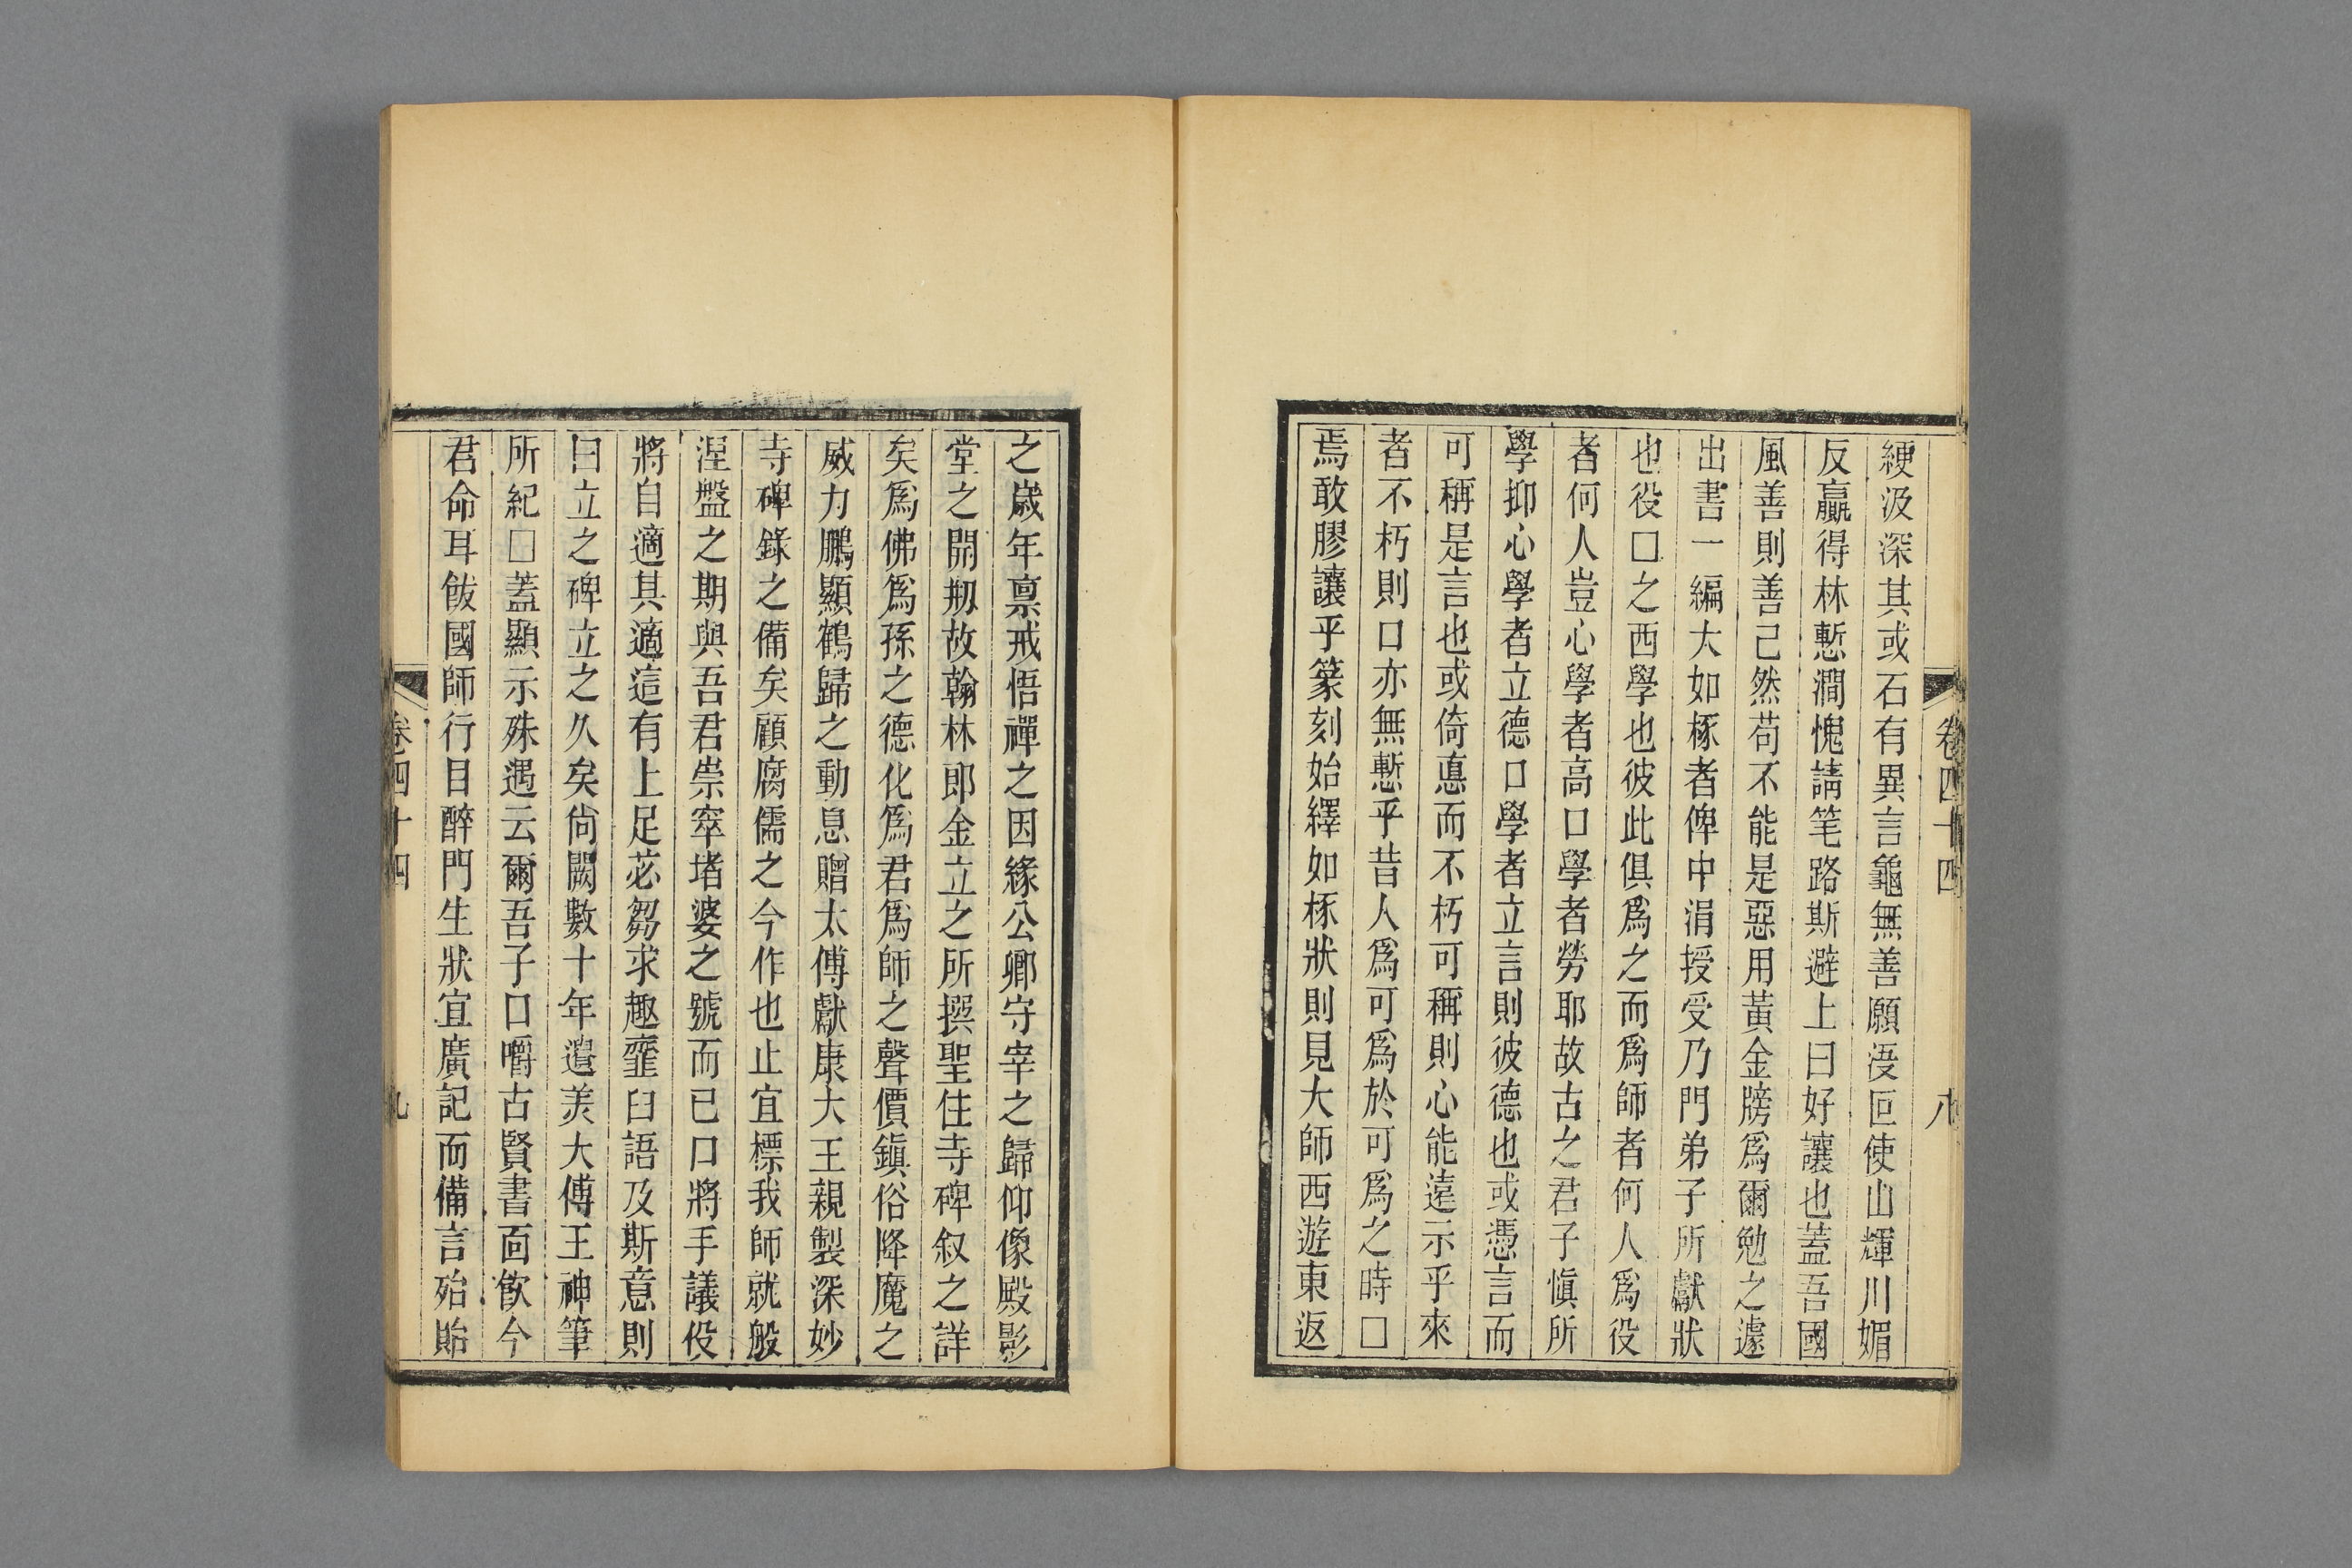 卷四十四
八
綆汲深其或石有異言龜無善願浸叵使山輝川媚
反贏得林慙澗愧請筆路斯避上曰好讓也蓋吾國
風善則善己然苟不能是惡用黃金牓爲爾勉之遽
出書一編大如椓者俾中涓授受乃門弟子所獻狀
也役□之西學也彼此俱爲之而爲師者何人爲役
者何人豈心學者高口學者勞耶故古之君子愼所
學抑心學者立德口學者立言則彼德也或憑言而
可稱是言也或倚悳而不朽可稱則心能遠示乎來
者不朽則口亦無慙乎昔人爲可爲於可爲之時□
焉敢膠讓乎篆刻始繹如椓狀則見大師西遊東返
之歲年禀戒悟禪之因緣公卿守宰之歸仰像殿影
堂之開刱故翰林郎金立之所撰聖住寺碑叙之詳
矣爲佛爲孫之德化爲君爲師之聲價鎭俗降魔之
威力鵬顯鶴歸之動息贈太傅獻康大王親製深妙
寺碑錄之備矣顧腐儒之今作也止宜標我師就般
涅盤之期與吾君崇窣堵婆之號而已口將手議役
將自適其適這有上足苾蒭求趣虀臼語及斯意則
曰立之碑立之久矣尙闕數十年遺美大傅王神筆
所紀□蓋顯示殊遇云爾吾子口嚼古賢書面飮今
君命耳飯國師行目醉門生狀宜廣記而備言殆貽
卷四十四
九